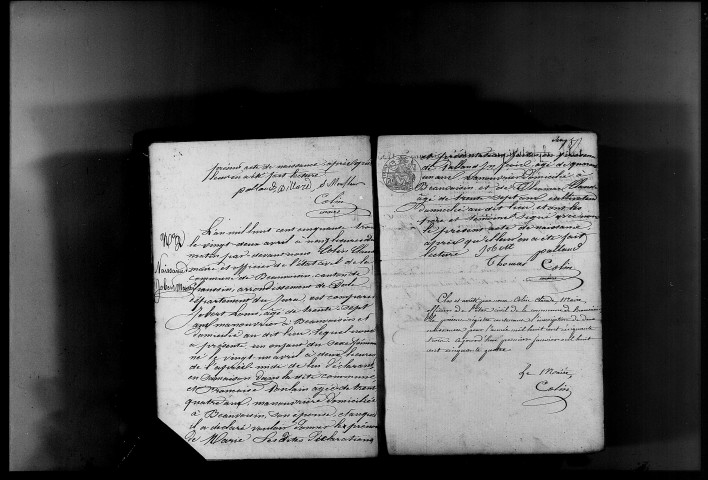 présent acte de naissance après qu'il
leur en a été fait lecture.
Pallaud
Colin
maire
N° 2
Naissance
Jobert Marie
L'an mil huit cent cinquante trois
le vingt deux avril à neuf heures du
matin par devant nous Colin Claude
maire et officier de l'état civil de la
commune de Beauvoisin, canton de
Chaussin, arrondissement de Dole
département du Jura, est comparu
Jobert Louis, âgé de trente-sept
ans manouvrier à Beauvoisin et
domicilié au dit lieu, lequel nous
a présenté un enfant du sexe féminin
né le vingt un avril à deux heures
de l'après-midi de lui déclarant
en sa maison dans la dite commune
et Poulain âgée de trente
quatre ans, manouvrière domiciliée
à Beauvoisin, son épouse, et auquel
il a déclaré vouloir donner le prénom
de Marie. Les dites déclarations
et présentation faites en présence
de Pallaud âgé de quarante
un ans manouvrier domicilié à
Beauvoisin et de Thomas
âgé de trente sept ans cultivateur
domicilié au dit lieu et ont les
père et témoins signé avec nous
le présent acte de naissance
après qu'il leur en a été fait
lecture. Pallaud
Thomas Colin
maire
Clos et arrêté par nous Colin Claude, Maire
officier de l'état civil de la commune de Beauvoisin
le présent registre
pour l'année mil huit cent cinquante
trois. Aujourd'hui premier janvier mil huit
cent cinquante quatre.
Le Maire
Colin